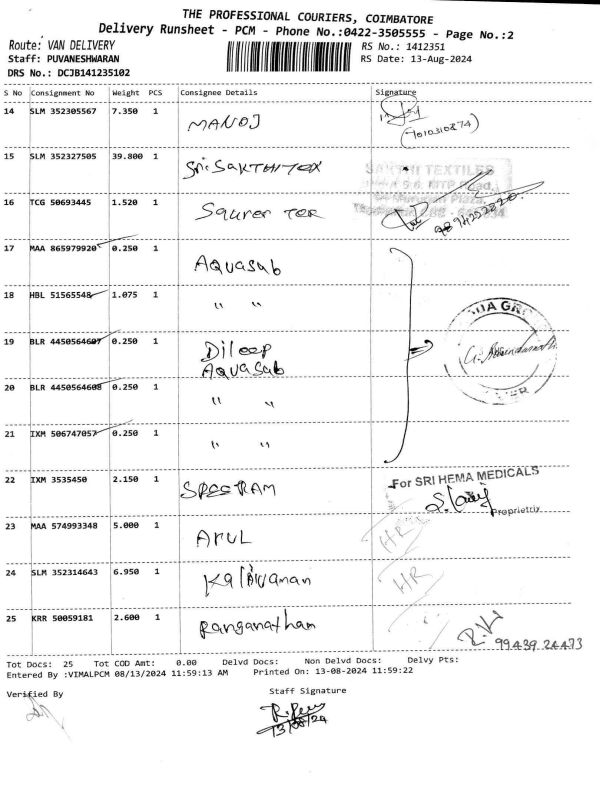 THE PROFESSIONAL COURIERS, COIMBATORE
Delivery Runsheet - PCM - Phone No.:0422-3505555 - Page No.:2
Route: VAN DELIVERY RS No.: 1412351
Staff: PUVANESHWARAN RS Date: 13-Aug-2024
DRS No.: DCJB141235102
S No Consignment No Weight PCS Consignee Details Signature
14 SLM 352305567 7.350 1 MANOJ
15 SLM 352327505 39.800 1 Sri SAKTHI TEX
SAKTHI TEXTILES
16 TCG 50693445 1.520 1 Saurer TEX
17 MAA 865979920 0.250 1 Aquasub
18 HBL 51565548 1.075 1 " "
19 BLR 4450564607 0.250 1 Dileep
Aquasub
20 BLR 4450564608 0.250 1 " "
21 IXM 506747057 0.250 1 " "
22 IXM 3535450 2.150 1 For SRI HEMA MEDICALS
Proprietrix
23 MAA 574993348 5.000 1 Arul HR
24 SLM 352314643 6.950 1 HR
25 KRR 50059181 2.600 1 Ranganathan
99439 24473
Tot Docs: 25 Tot COD Amt: 0.00 Delvd Docs: Non Delvd Docs: Delvy Pts:
Entered By :VIMALPCM 08/13/2024 11:59:13 AM Printed On: 13-08-2024 11:59:22
Verified By Staff Signature
13/08/24